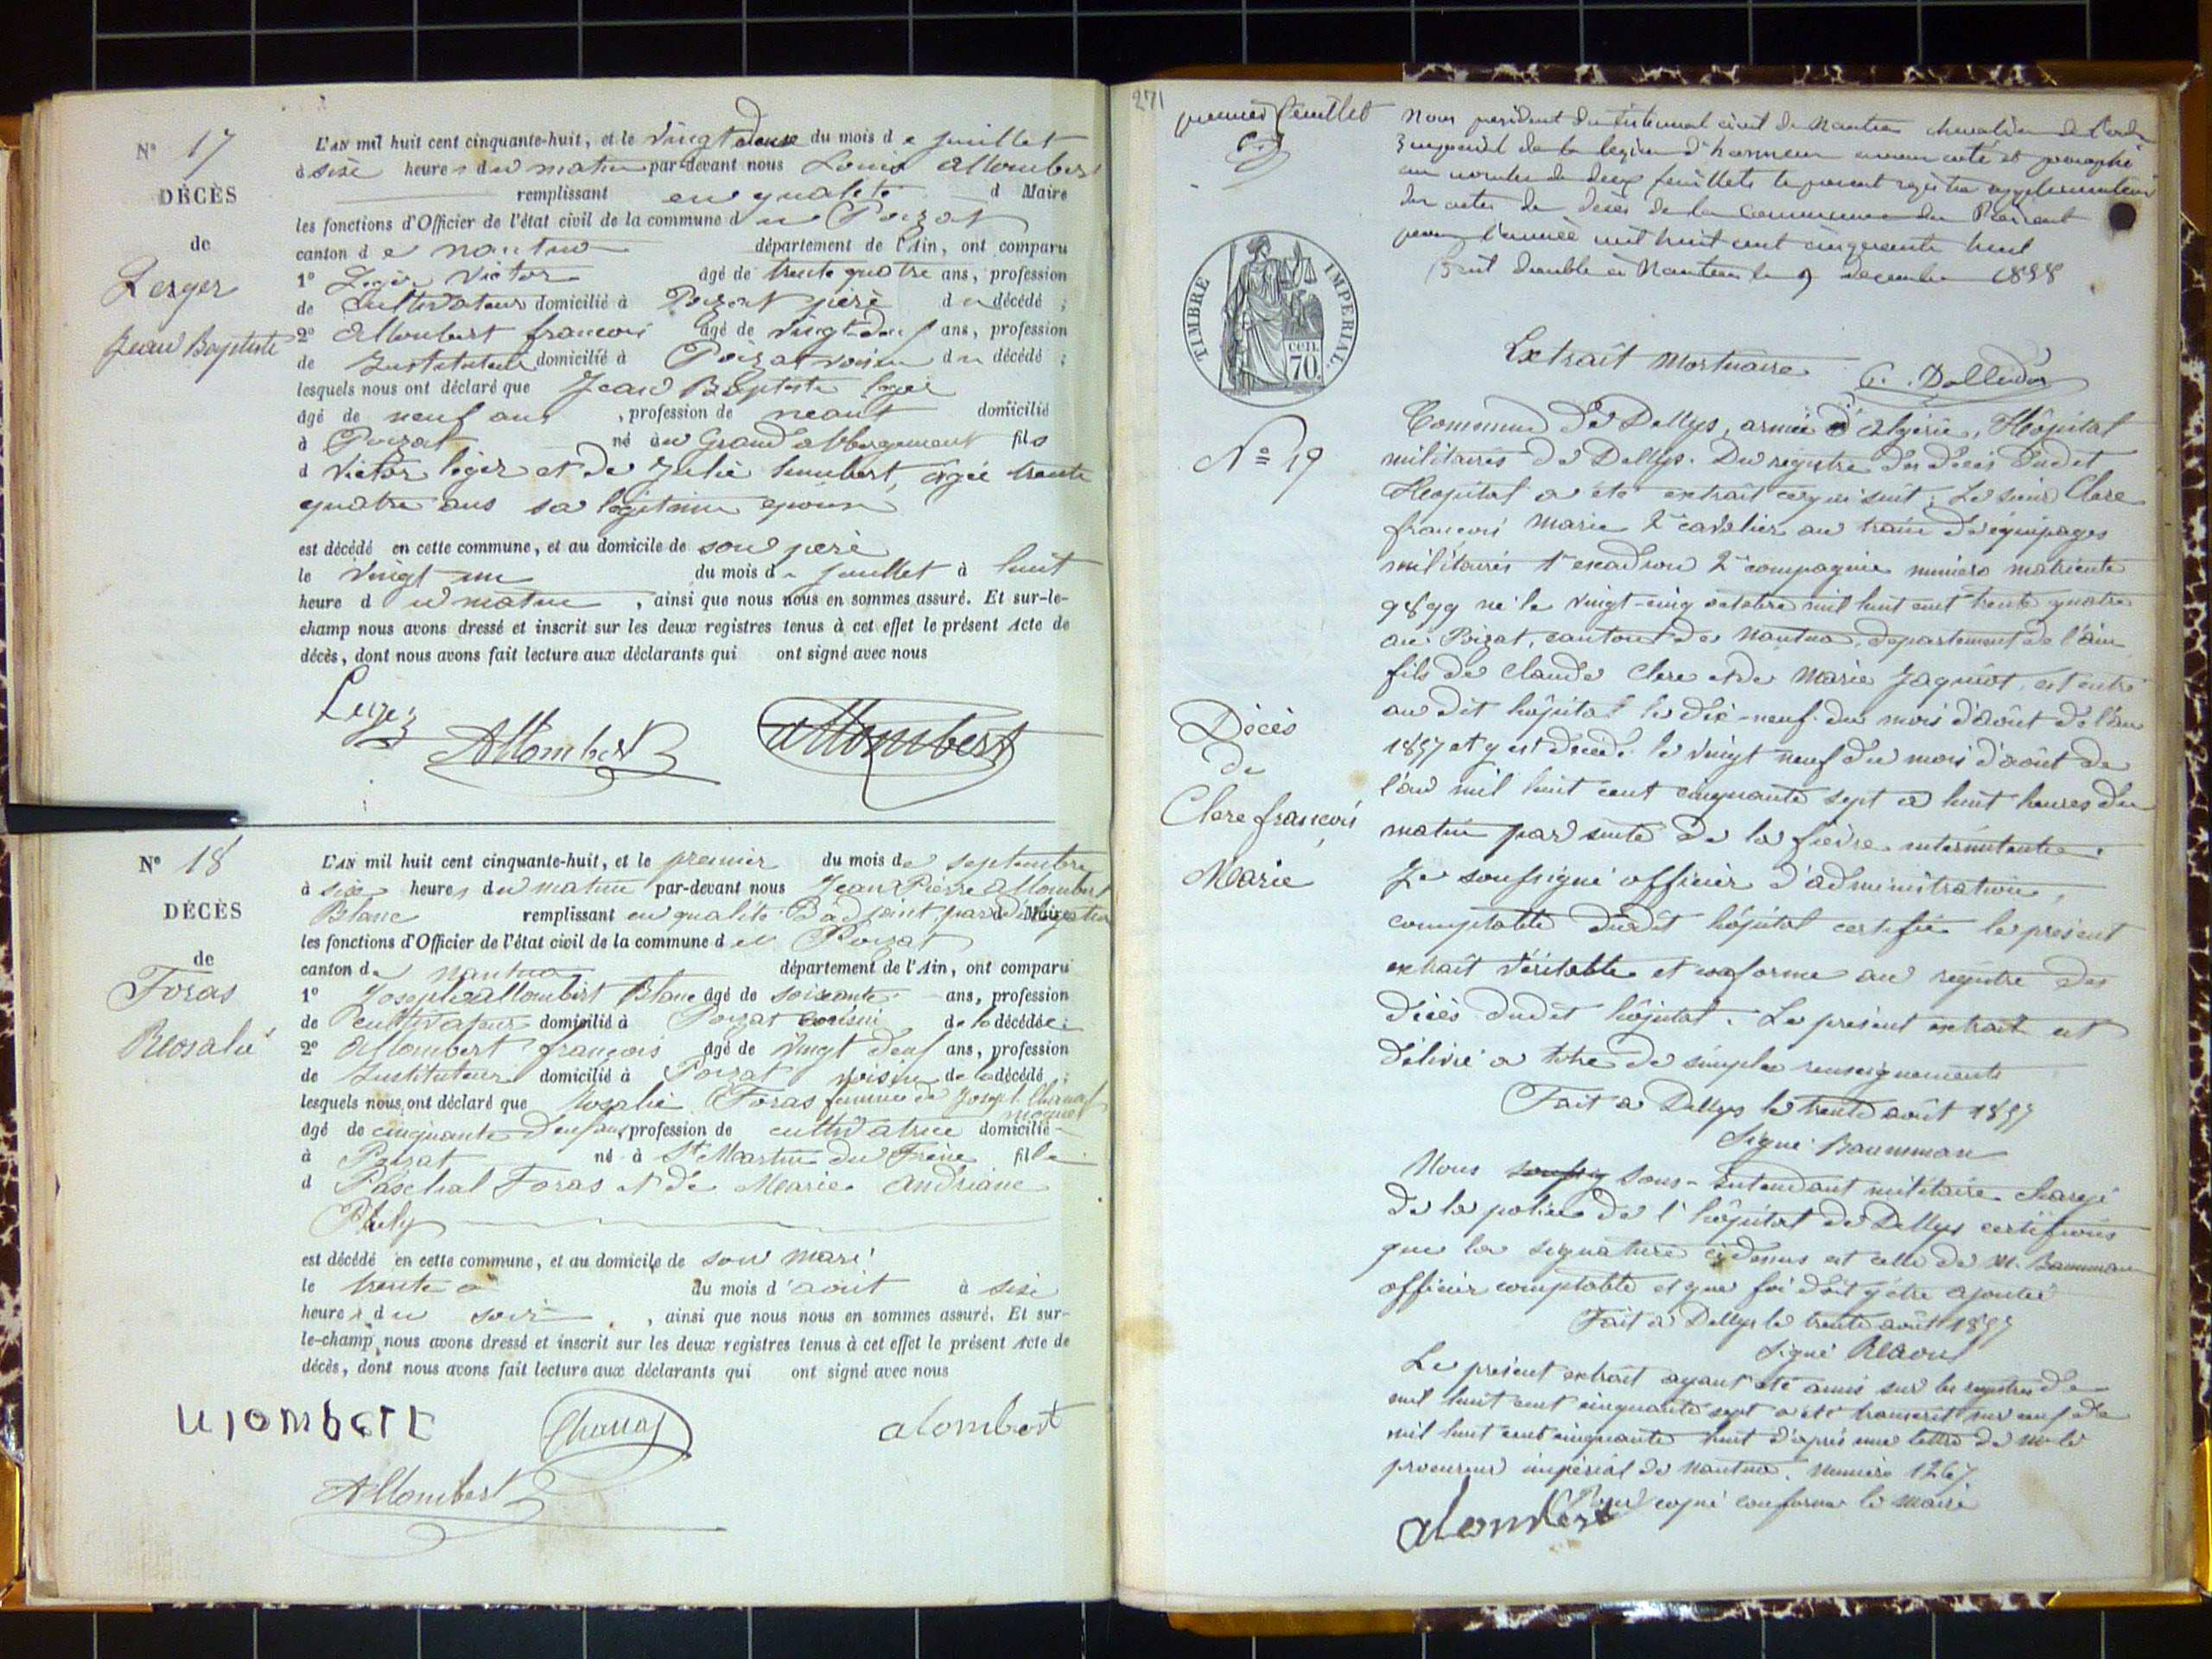 N° 17
DÉCÈS
de
Lerger
Jean Baptiste
L'AN mil huit cent cinquante-huit, et le vingt deux du mois de juillet
à sixe heures du matin par-devant nous Louis Allombert
remplissant en qualité d Maire
les fonctions d'Officier de l'état civil de la commune du Poizat
canton de nantua département de l'Ain, ont comparu
1° Leger Victor âgé de trente quatre ans, profession
de cultivateur domicilié à Poizat père du décédé ;
2° Allombert francois âgé de vingt-deuf ans, profession
de Instituteur domicilié à Poizat voisin du décédé ;
lesquels nous ont déclaré que Jean Baptiste leger
âgé de neuf ans , profession de neant domicilié
à Poizat né au Grand abbergement fils
d Victor leger et de Julie humbert, agée trente
quatre ans sa legitime epouse
est décédé en cette commune, et au domicile de son père
le vingt un du mois de juillet à huit
heure du matin , ainsi que nous nous en sommes assuré. Et sur-le-
champ nous avons dressé et inscrit sur les deux registres tenus à cet effet le présent Acte de
décès, dont nous avons fait lecture aux déclarants qui ont signé avec nous
Leger
Allombert
allombert
N° 18
DÉCÈS
de
Foras
Reosalie
L'AN mil huit cent cinquante-huit, et le premier du mois de septembre
à sixe heures du matin par-devant nous Jean Pierre allombert
Blanc remplissant en qualité d'adjoint par délégation d Maire
les fonctions d'Officier de l'état civil de la commune du Poizat
canton de nantua département de l'Ain, ont comparu
1° Joseph allombert Blanc âgé de soixante ans, profession
de cultivateur domicilié à Poizat voisin de la décédée ;
2° Allombert françois âgé de vingt deuf ans, profession
de Instituteur domicilié à Poizat voisin de la décédé ;
lesquels nous ont déclaré que Rosalie Foras femme de Joseph
âgé de cinquante deuf ans, profession de cultivatrice domicilié
à Poizat né à St Martin du Frène fille
d Paschal Foras et de Marie andriane
est décédé en cette commune, et au domicile de son mari
le trente du mois d'aout à sixe
heures du soir , ainsi que nous nous en sommes assuré. Et sur-
le-champ nous avons dressé et inscrit sur les deux registres tenus à cet effet le présent Acte de
décès, dont nous avons fait lecture aux déclarants qui ont signé avec nous
alombert
Allombert
271
premier feuillet
Nous president du tribunal civil de Nantua chevalier de l'ordre
Imperial de la legion d'honneur avons coté et paraphé
au nombre de deux feuillets le present registre supplementaire
des actes de décès de la commune du
pour l'année mil huit cent cinquante huit
Fait double à Nantua le 9 decembre 1858
TIMBRE IMPERIAL
70 cen.
Extrait Mortuaire
N° 19
Décès
de
Clere françois
Marie
Commune de Dellys, armée d'Algérie, Hôpital
militaires de Dellys. Du registre des décès dudit
Hopital a été extrait ce qui suit ; Le sieur Clere
françois Marie 2e cavalier au train d'équipages
militaires 1er escadron 2e compagnie numéro matricule
9899 né le vingt-cinq octobre mil huit cent trente quatre
au Poizat, canton de Nantua, departement de l'ain
fils de Claude Clere et de Marie Jaquiot, est entré
au dit hôpital le dix-neuf du mois d'août de l'an
1857 et y est décédé le vingt neuf du mois d'août de
l'an mil huit cent cinquante sept à huit heures du
matin par suite de la fievre intermittente.
Je soussigné officier d'administration,
comptable dudit hôpital certifie le present
extrait véritable et conforme au registre des
décès dudit hôpital. Le present extrait est
délivré a titre de simples renseignements
Fait a Dellys le trente août 1857
Signé Baumman
Nous soussig sous-Intendant militaire chargé
de la police de l'hôpital de Dellys certifions
que la signature ci-dessus est celle de M. Baumman
officier comptable et que foi doit y être ajoutée
Fait à Dellys le trente août 1857
Signé
Le présent extrait ayant été omis sur les registres de
mil huit cent cinquante sept a été transcrit sur ceux de
mil huit cent cinquante huit d'après une lettre de M. le
procureur impérial de Nantua, numero 1267
Pour copie conforme le maire
alombert